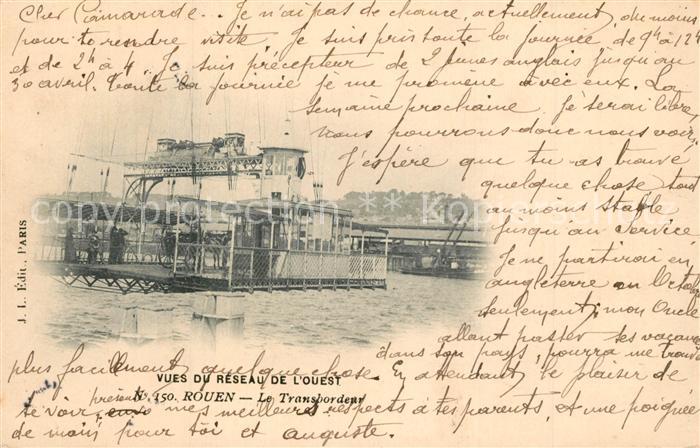 Cher Camarade.. Je n'ai pas de chance, actuellement, du moins
pour te rendre visite. Je suis pris toute la journée de 9h à 12h
et de 2h à 4. Je suis précepteur de 2 jeunes anglais jusqu'au
30 avril. Toute la journée je me promène avec eux. La
semaine prochaine je serai libre,
nous pourrons donc nous voir.
J'espère que tu as trouvé
quelque chose, tout
au moins stable
jusqu'au service
Je ne partirai en
angleterre qu'en Octobre
seulement, mon Oncle
allant passer ses vacances
dans son pays, pourra me trouver
plus facilement quelque chose. En attendant le plaisir de
te voir présente mes meilleurs respects à tes parents. et une poignée
de main pour toi et auguste.
J. L. Édit. PARIS
VUES DU RÉSEAU DE L'OUEST
No 150. ROUEN — Le Transbordeur
www.ansichtskartenversand.com